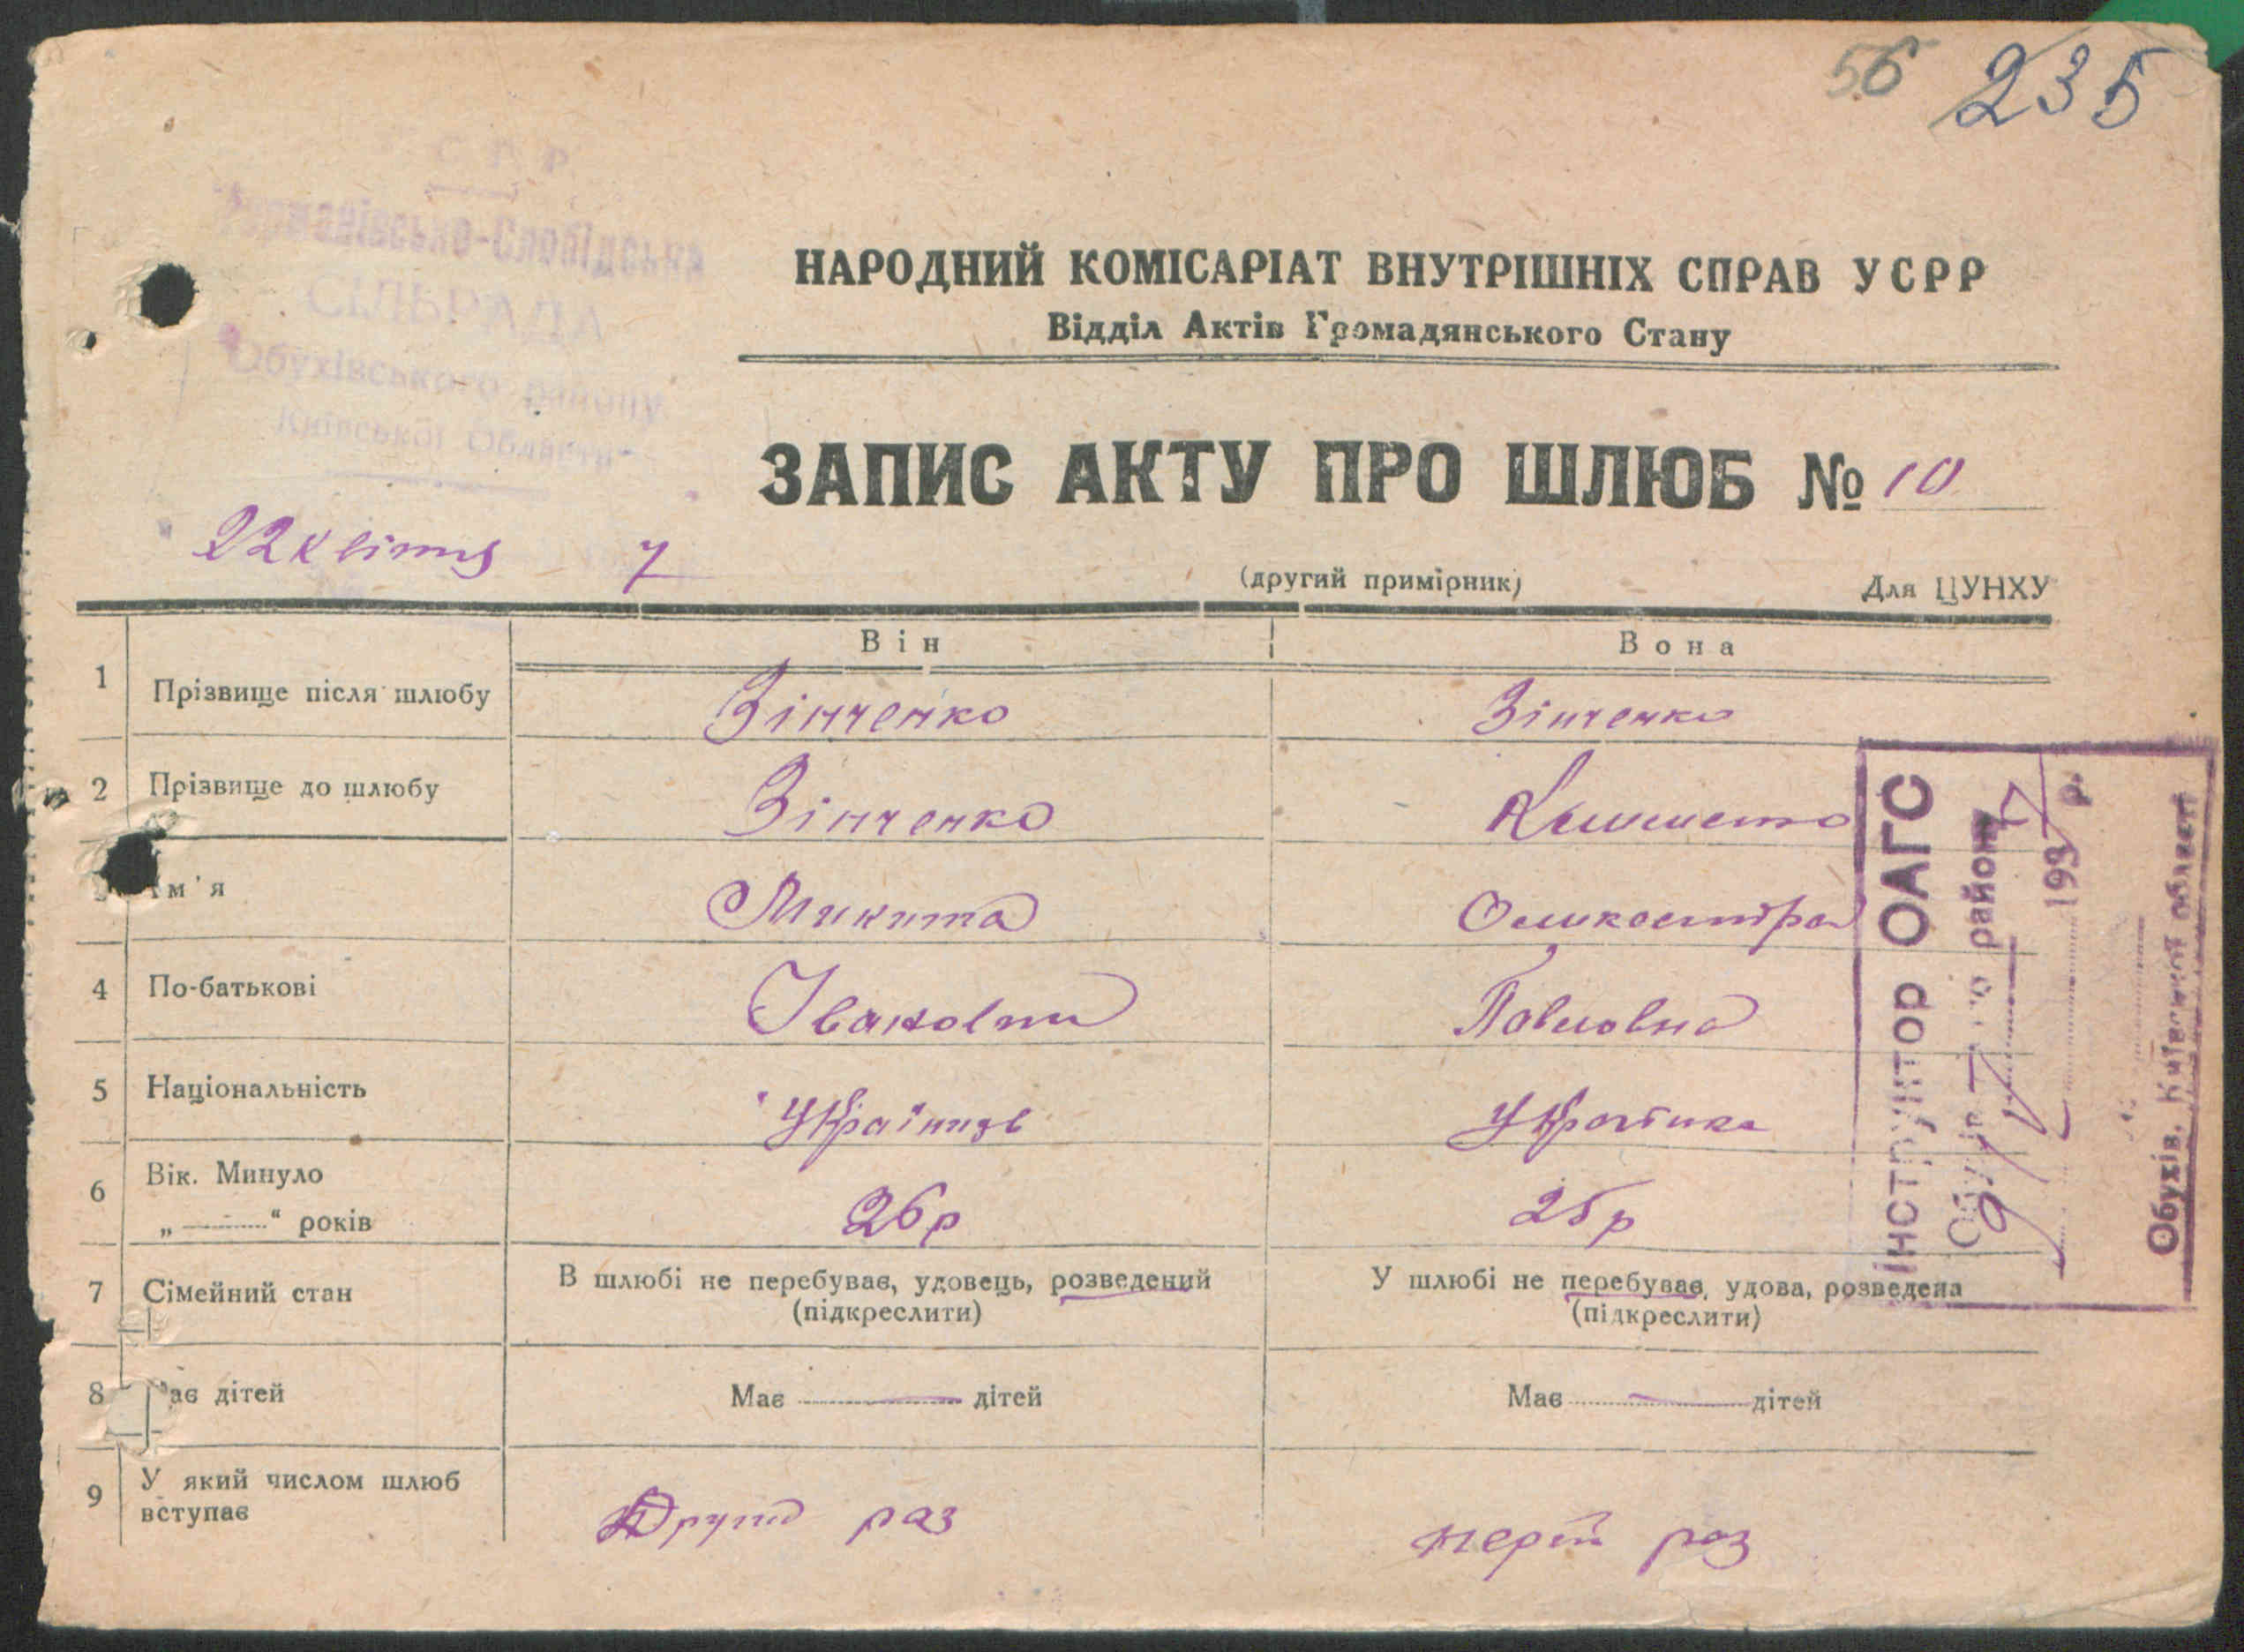 56 235
СІЛЬРАДА
Обухівського району
Київської Області
НАРОДНИЙ КОМІСАРІАТ ВНУТРІШНІХ СПРАВ УСРР
Відділ Актів Громадянського Стану
ЗАПИС АКТУ ПРО ШЛЮБ № 10
22 квітня 7
(другий примірник) Для ЦУНХУ
Він Вона
1 Прізвище після шлюбу Зінченко Зінченко
2 Прізвище до шлюбу Зінченко
м'я Микита
4 По-батькові Іванович Павловна
5 Національність Українець Українка
6 Вік. Минуло 26 р 25 р
„ “ років
7 Сімейний стан В шлюбі не перебував, удовець, розведений У шлюбі не перебував, удова, розведена
(підкреслити) (підкреслити)
8 ає дітей Має — дітей Має — дітей
9 У який числом шлюб
вступає
раз раз
ІНСТРУКТОР ОАГС
району
1937 р.
Обухів, Київської області